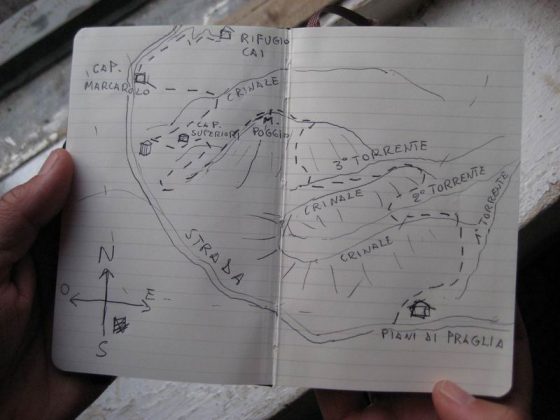 RIFUGIO
CAI
CAP.
MARCAROLO
CRINALE
CAP.
SUPERIORE
M.
POGGIO
3° TORRENTE
CRINALE
2° TORRENTE
1° TORRENTE
CRINALE
STRADA
N
O E
S
PIANI DI PRAGLIA